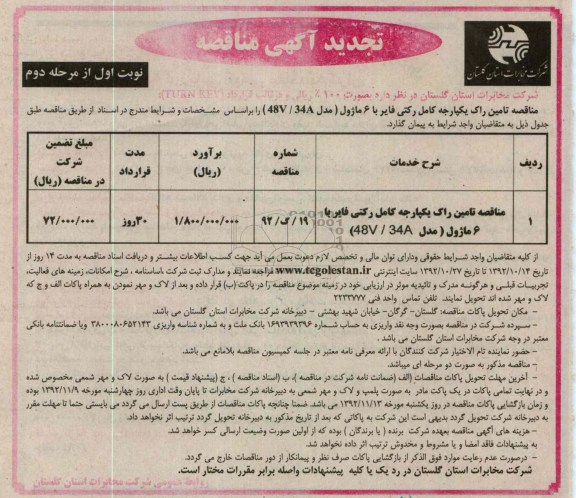 تجدید آگهی مناقصه
شرکت مخابرات استان گلستان
نوبت اول از مرحله دوم
شرکت مخابرات استان گلستان در نظر دارد بصورت ۱۰۰٪
مناقصه تامین راک یکپارچه کامل رکتی فایر با ۶ ماژول ( مدل 48V / 34A ) را براساس مشخصات و شرایط مندرج در اسناد از طریق مناقصه طبق
جدول ذیل به متقاضیان واجد شرایط به پیمان گذارد.
ردیف شرح خدمات شماره مناقصه برآورد (ریال) مدت قرارداد مبلغ تضمین شرکت در مناقصه (ریال)
۱ مناقصه تامین راک یکپارچه کامل رکتی فایر با ۶ ماژول ( مدل 48V / 34A ) ۱۹ / گ / ۹۲ ۱/۸۰۰/۰۰۰/۰۰۰ ۳۰روز ۷۲/۰۰۰/۰۰۰
از کلیه متقاضیان واجد شرایط حقوقی ودارای توان مالی و تخصیص لازم دعوت بعمل می آید جهت کسب اطلاعات بیشتر و دریافت اسناد مناقصه به مدت ۱۴ روز از
تاریخ ۱۳۹۲/۱۰/۱۴ تا تاریخ ۱۳۹۲/۱۰/۲۷ سایت اینترنتی www.tcgolestan.ir مراجعه نمایند و مدارک ثبت شرکت ،اساسنامه ، شرح امکانات، زمینه های فعالیت،
تجربیات قبلی و هرگونه مدرک و تائیدیه موثر در ارزیابی خود در زمینه موضوع مناقصه را در پاکت (ب) قرار داده و بعد از لاک و مهر نمودن به همراه پاکات الف و ج که
لاک و مهر شده اند تحویل نمایند. تلفن تماس واحد فنی ۲۲۳۳۷۷۷
- مکان تحویل پاکات مناقصه: گلستان- گرگان- خیابان شهید بهشتی - دبیرخانه شرکت مخابرات استان گلستان می باشد.
- سپرده شرکت در مناقصه بصورت وجه نقد واریزی به حساب شماره ۱۶۹۳۹۳۹۳۹۶ بانک ملت و به شماره شناسه واریزی ۳۸۰۰۰۸۰۶۵۲۱۴۳ ویا ضمانتنامه بانکی
معتبر در وجه شرکت مخابرات استان گلستان می باشد .
- حضور نماینده تام الاختیار شرکت کنندگان با ارائه معرفی نامه معتبر در جلسه کمیسیون مناقصه بلامانع می باشد.
- مناقصه مذکور به صورت دو مرحله ای میباشد.
- آخرین مهلت تحویل پاکات مناقصات (الف (ضمانت نامه شرکت در مناقصه )، ب (اسناد مناقصه ) ، ج (پیشنهاد قیمت ) به صورت لاک و مهر شمعی مخصوص شده
و در نهایت تمامی پاکات در یک پاکت مادر به صورت پلمپ و لاک و مهر شمعی به دبیرخانه شرکت مخابرات تا پایان وقت اداری روز چهارشنبه مورخه ۱۳۹۲/۱۱/۹ بوده
و زمان بازگشایی پاکات مناقصه در روز یکشنبه مورخه ۱۳۹۲/۱۱/۱۳ می باشد. ضمنا چنانچه پاکات مناقصات از طریق پست ارسال می گردد می بایستی حتما تا مهلت مقرر
به دبیرخانه شرکت تحویل گردد بدیهی است این شرکت به پاکاتی که بعد از تاریخ مذکور به دبیرخانه تحویل گردد ترتیب اثر نخواهد داد.
- هزینه های آگهی مناقصه بعهده شرکت برنده ( یا برندگان ) بوده که از اولین صورت وضعیت ارسالی کسر خواهد شد.
به پیشنهادات فاقد امضا و یا مشروط و مخدوش ترتیب اثر داده نخواهد شد.
- درصورت عدم رعایت موارد فوق الذکر از بازگشایی پاکات صرف نظر و پیمانکار از دور مناقصات خارج می گردد.
شرکت مخابرات استان گلستان در رد یک یا کلیه پیشنهادات واصله برابر مقررات مختار است.
روابط عمومی شرکت مخابرات استان گلستان